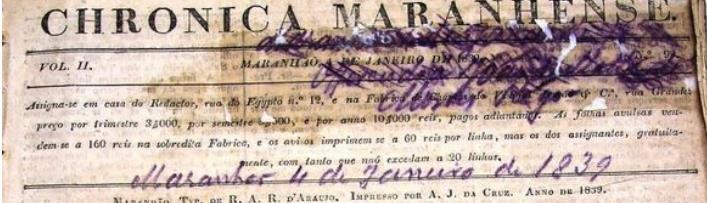 CHRONICA MARANHENSE.
VOL. II. MARANHÃO, 4 DE JANEIRO DE
Assigna-se em casa do Redactor, rua do Egypto n.º 12, e na Fabrica de & C.ª, rua Grande
preço por trimestre 3$000, por semestre e por anno 10$000 reis, pagos adiantados. As folhas avulsas ven-
dem-se a 160 reis na sobredita Fabrica, e os avisos imprimem-se a 60 reis por linha, mas os dos assignantes, gratuita-
mente, com tanto que naõ excedam a 20 linhas.
Maranhão 4 de Janeiro de 1839
MARANHÃO, TYP. DE R. A. R. D'ARAUJO. IMPRESSO POR A. J. DA CRUZ. ANNO DE 1839.